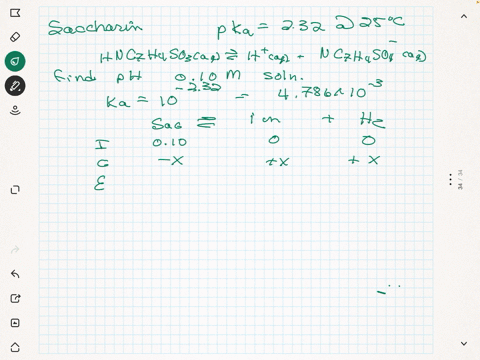 Saccharin pKa = 2.32 @ 25°C
HNC7H4SO3(aq) ⇌ H+(aq) + NC7H4SO3-(aq)
Find pH 0.10 M soln.
Ka = 10^-2.32 = 4.786x10^-3
Sac ⇌ ion +
I 0.10 0 0
C -x +x + x
E